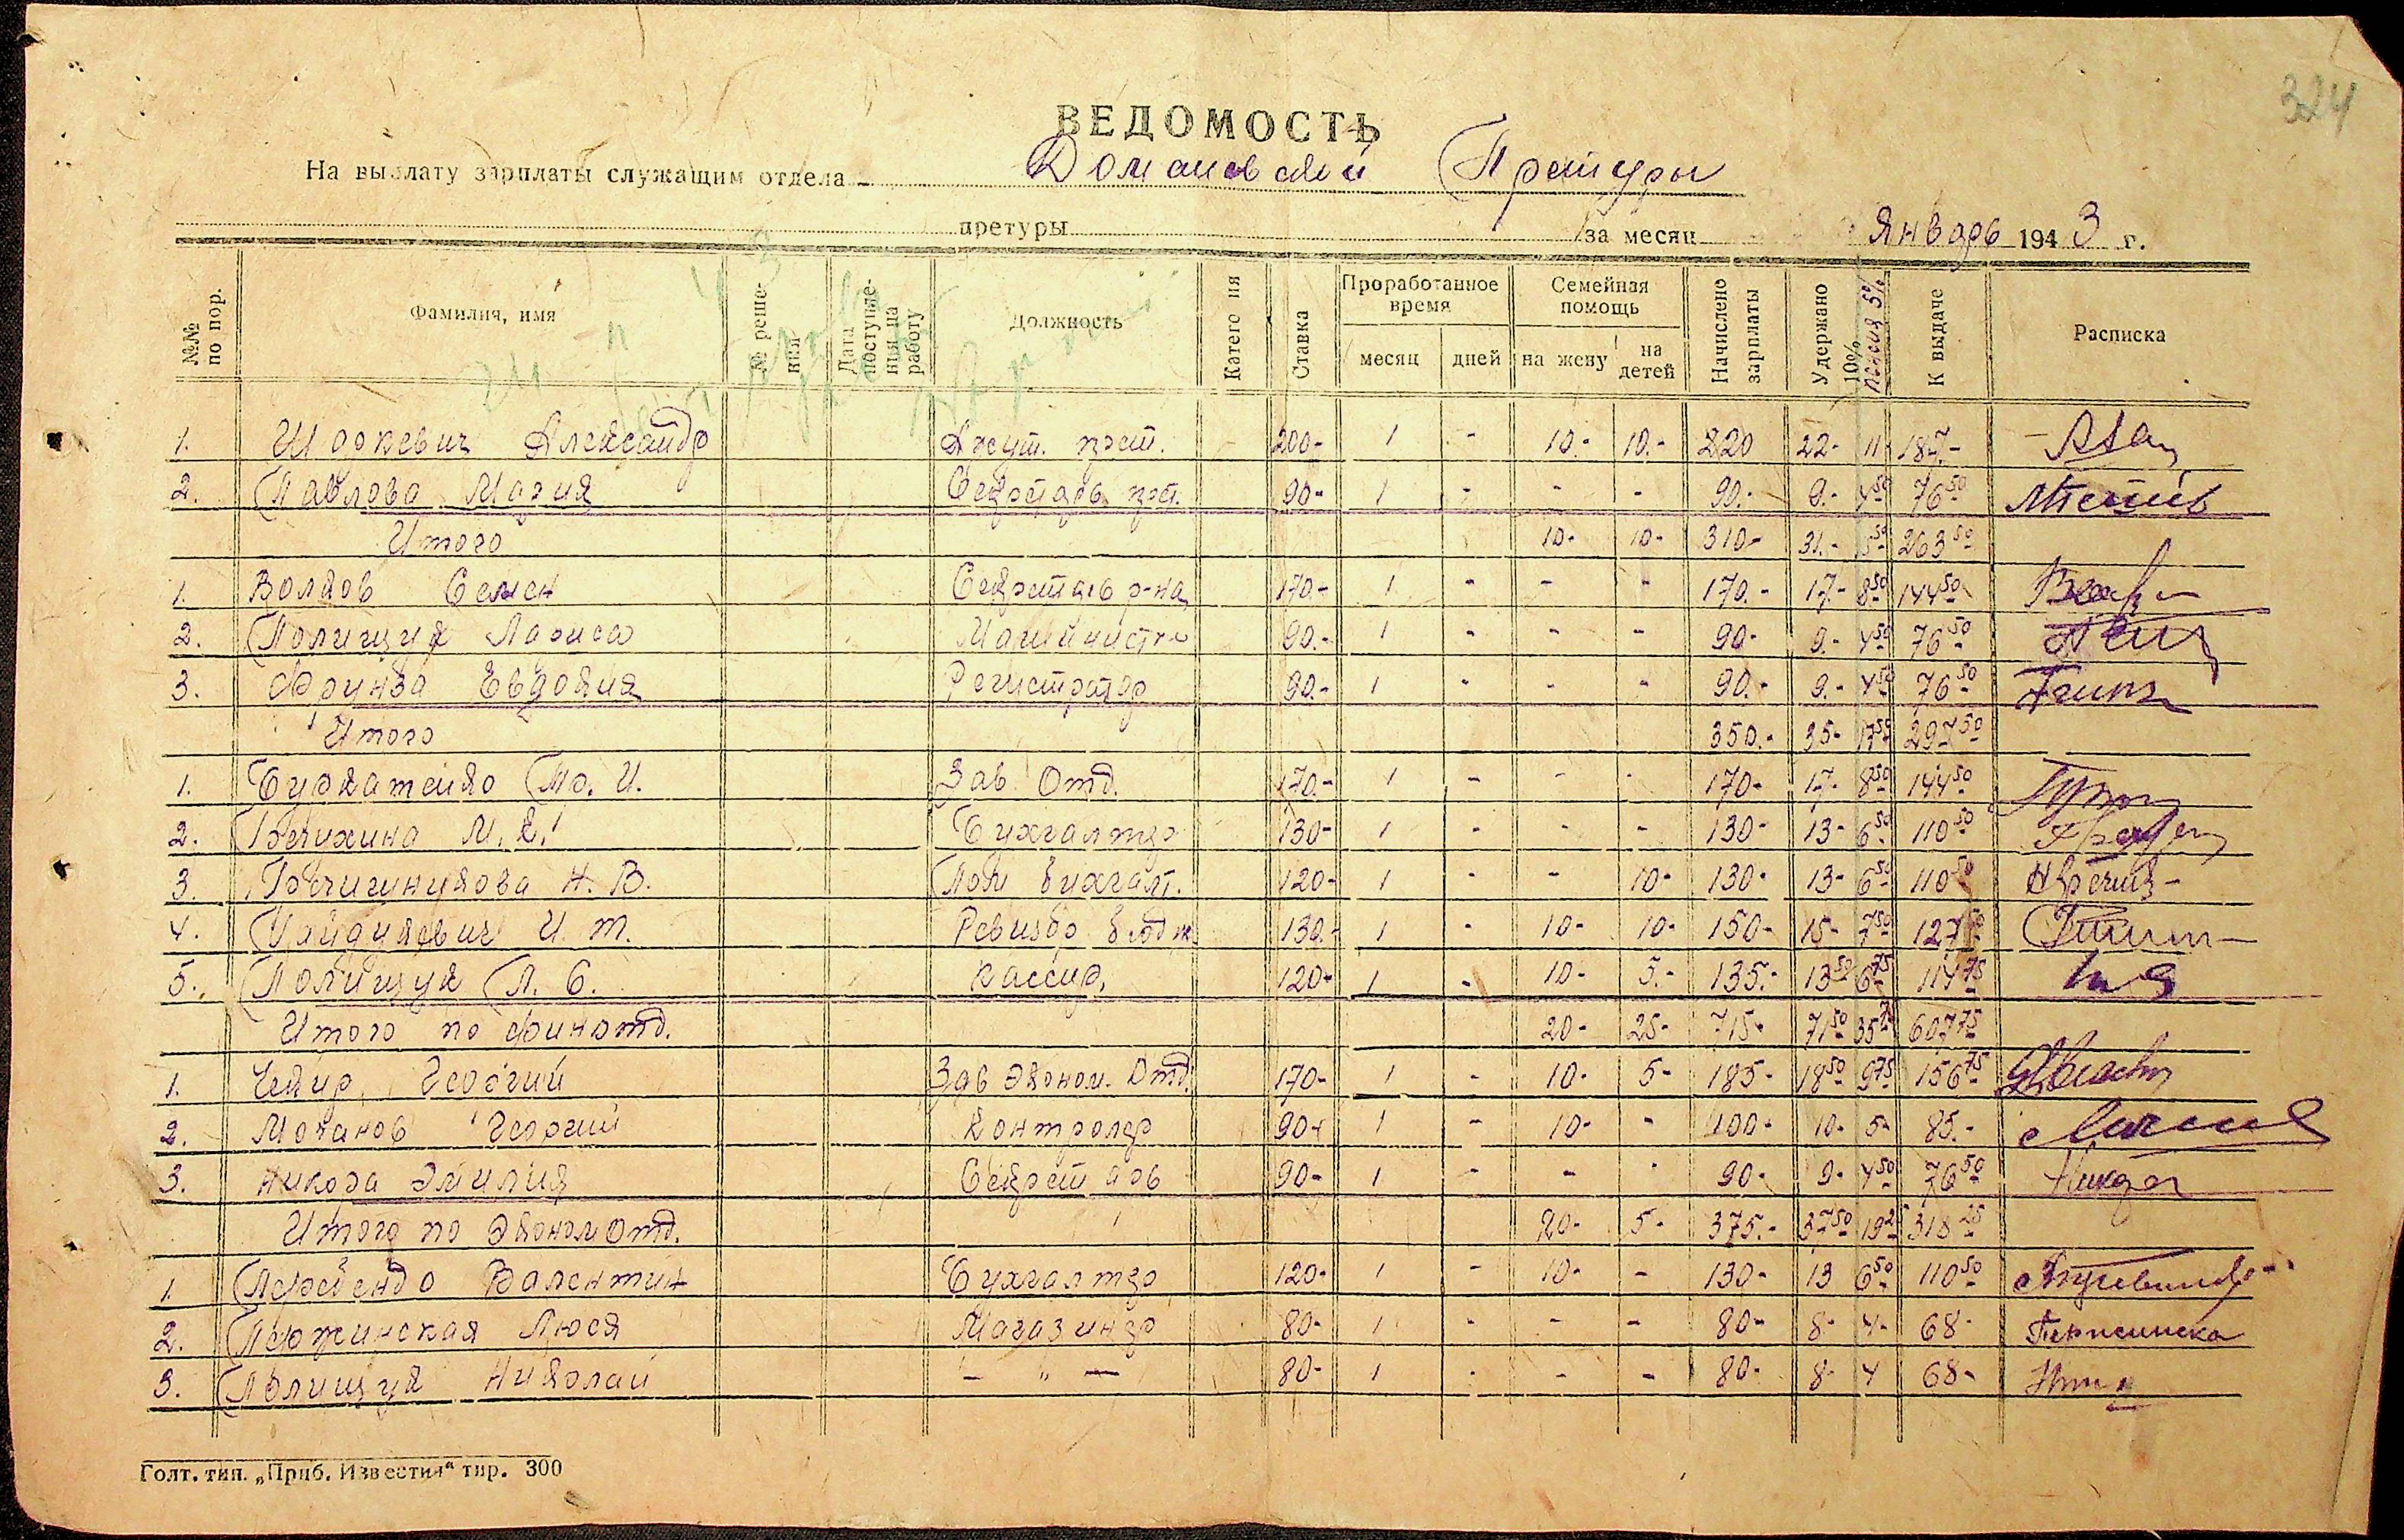 324
ВЕДОМОСТЬ
На выплату зарплаты служащим отдела Домановской Претуры
претуры за месяц Январь 1943 г.
№№ по пор. Фамилия, имя № реше-ния Дата поступле-ния на работу Должность Катего ия Ставка Проработанное время месяц дней Семейная помощь на жену на детей Начислено зарплаты Удержано 10% пенсия 5% К выдаче Расписка
1. Александр Аджут. прет. 200- 1 - 10.- 10.- 220 22- 11 187.-
2. Павлова Мария Секретарь прет. 90- 1 - - - 90.- 9.- 4 50 76 50
Итого 10- 10- 310- 31.- 15 50 263 50
1. Волков Семен Секретарь р-на 170.- 1 - - - 170.- 17- 8 50 144 50
2. Полищук Лариса Машинистка 90.- 1 - - - 90- 9.- 4 50 76 50
3. Фрунза Евдокия Регистратор 90.- 1 - - - 90.- 9.- 4 50 76 50
Итого 350.- 35- 17 50 297 50
1. И. Зав Отд. 170.- 1 - - - 170- 17- 8 50 144 50
2. М. Бухгалтер 130- 1 - - - 130- 13- 6 50 110 50
3. Н. В. Пом бухгалт. 120- 1 - - 10- 130- 13- 6 50 110 50
4. Гайдукевич И. Т. Ревизор бюдж 130.- 1 - 10- 10- 150- 15- 7 50 127 50
5. Полищук П. С. Кассир. 120- 1 - 10- 5.- 135.- 13 50 6 75 114 75
Итого по финотд. 20- 25- 715- 71 50 35 75 607 75
1. Георгий Зав Эконом. Отд. 170- 1 - 10- 5- 185- 18 50 9 75 156 75
2. Моканов Георгий Контролер 90- 1 - 10- - 100- 10- 5- 85.-
3. Никора Эмилия Секретарь 90- 1 - - - 90- 9- 4 50 76 50 Никора
Итого по Эконом Отд. 20- 5- 375.- 37 50 19 25 318 25
1. Валентин Бухгалтер 120- 1 - 10- - 130- 13 6 50 110 50
2. Люся Магазинер 80- 1 - - - 80- 8- 4- 68-
3. Полищук Николай - " - 80- 1 - - - 80- 8- 4 68-
Голт. тип. „Приб. Известия“ тир. 300